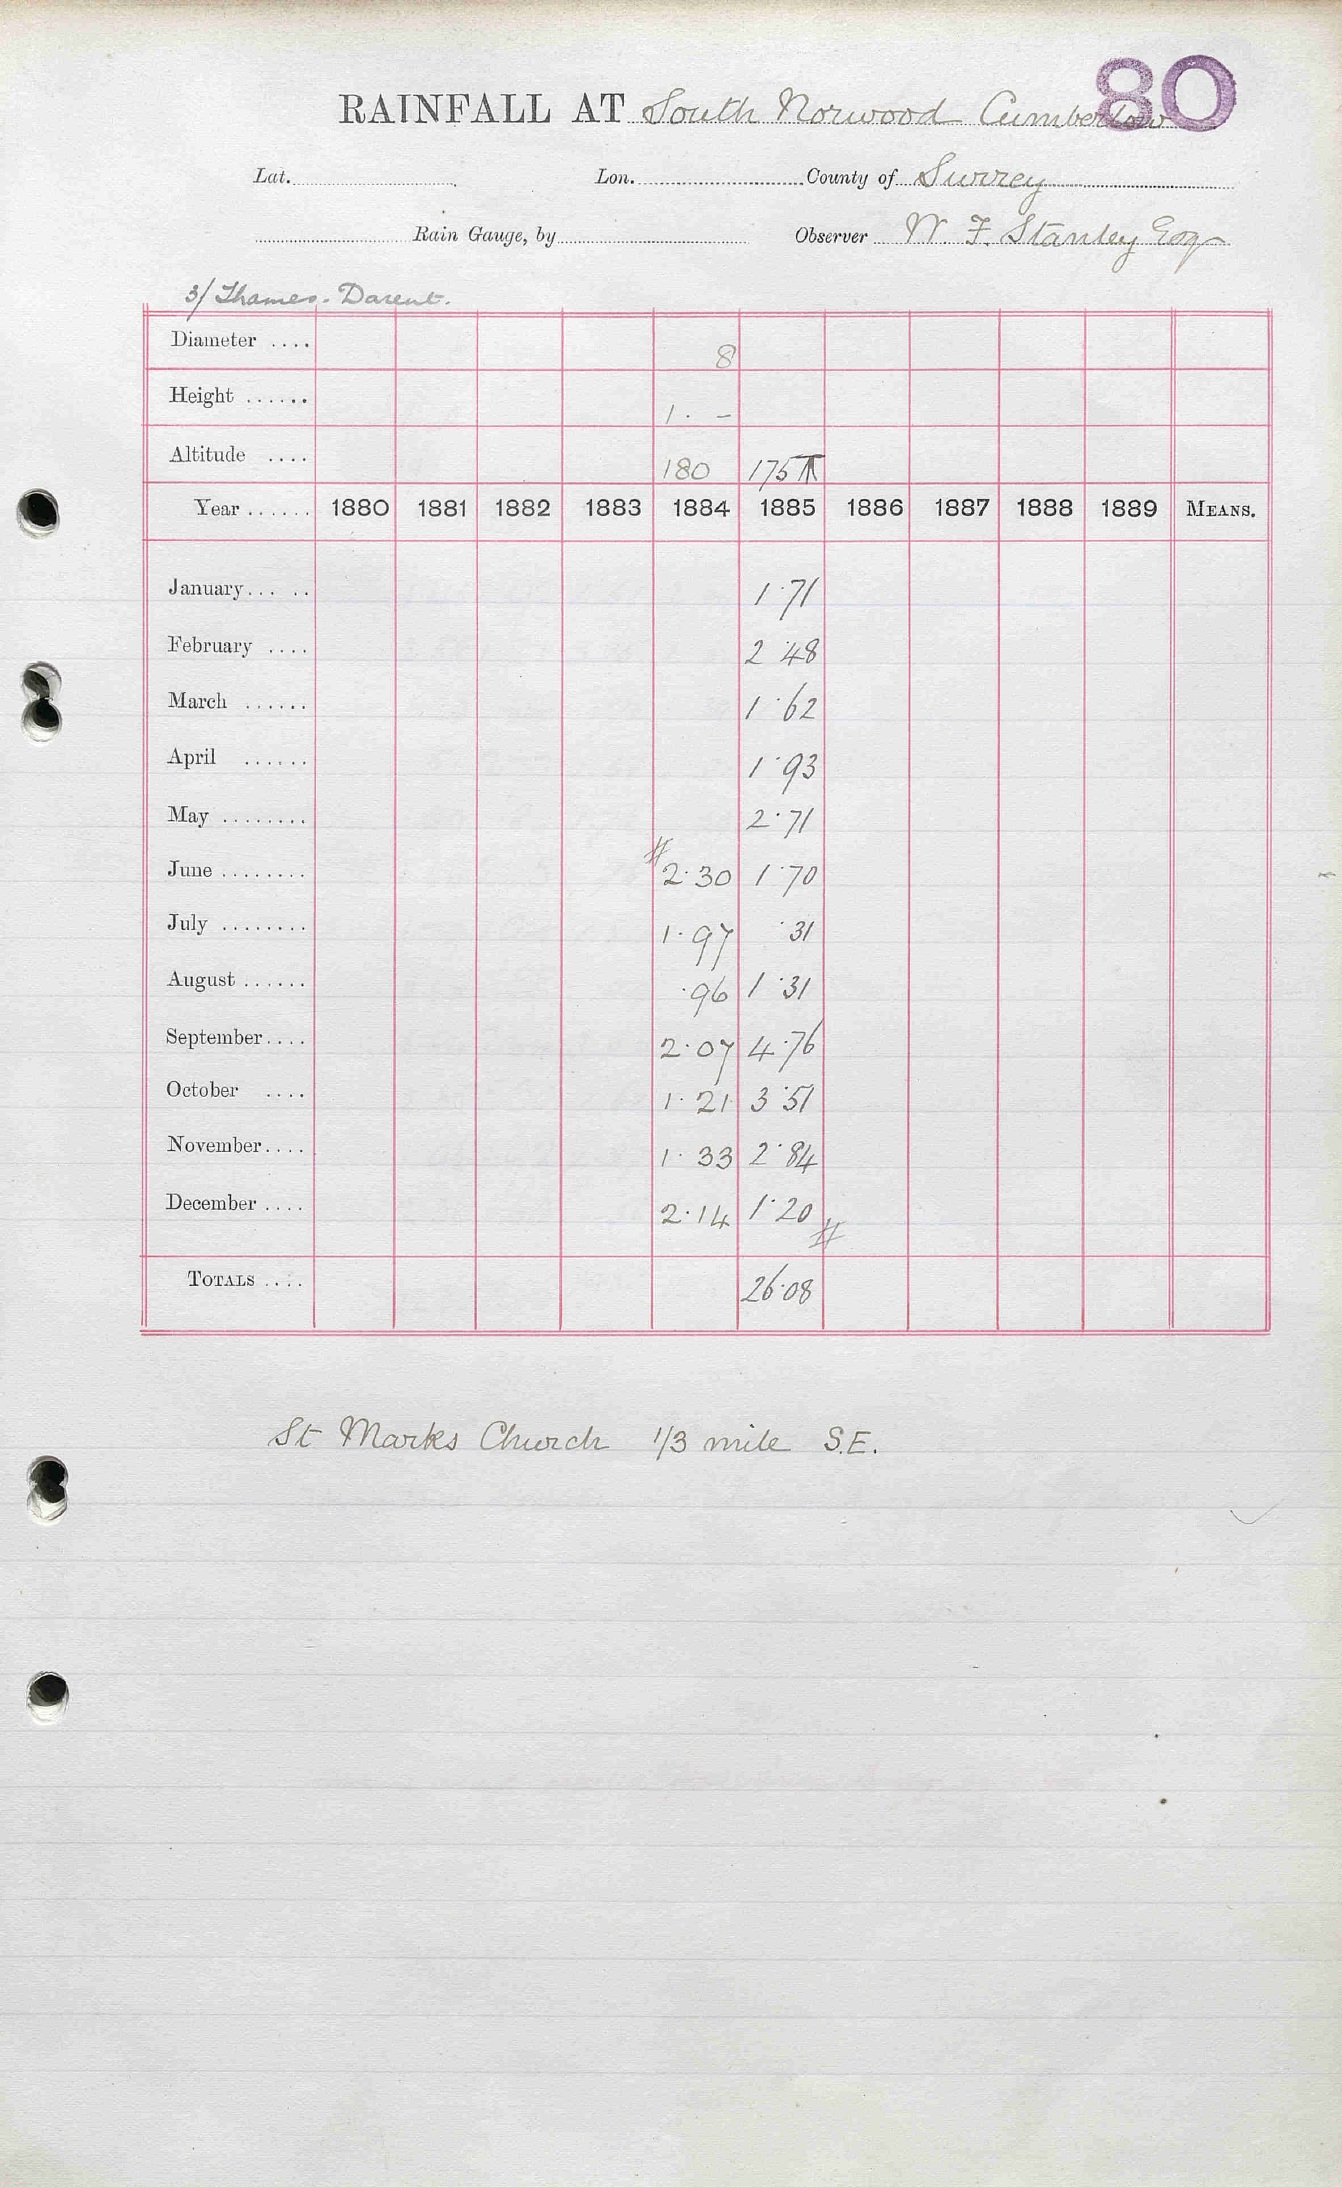 80
RAINFALL AT South Norwood Cumberlow
Lat. Lon. County of Surrey
Rain Gauge, by Observer W. F. Stanley Esq
3/ Thames - Darent.
Diameter .... 8
Height ...... 1 . -
Altitude .... 180 175 T
Year ...... 1880 1881 1882 1883 1884 1885 1886 1887 1888 1889 MEANS.
January... .. 1.71
February .... 2.48
March ...... 1.62
April ...... 1.93
May ........ 2.71
June ........ # 2.30 1.70
July ........ 1.97 .31
August ...... .96 1.31
September.... 2.07 4.76
October .... 1.21 3.51
November.... 1.33 2.84
December .... 2.14 1.20 #
TOTALS .... 26.08
St Marks Church 1/3 mile S.E.